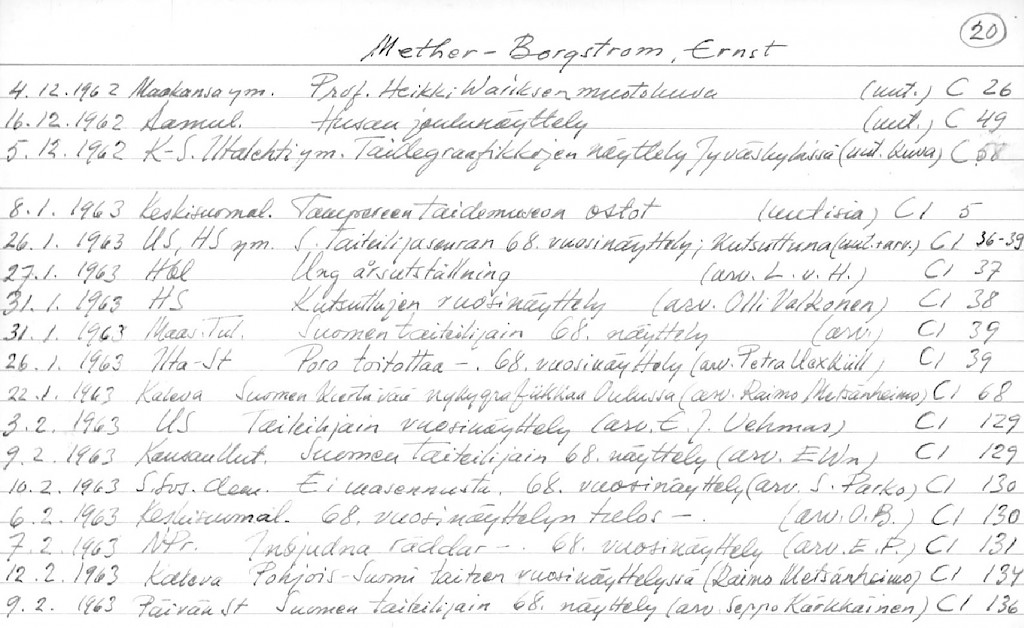 20
Mether-Borgström, Ernst
4.12.1962 Maakansa ym. Prof. Heikki Wariksen muotokuva (uut.) C 26
16.12.1962 Aamul. Husan joulunäyttely (uut.) C 49
5.12.1962 K-S. Iltalehti ym. Taidegraafikkojen näyttely Jyväskylässä (uut. kuva) C 58
8.1. 1963 Keskisuomal. Tampereen taidemuseon ostot (uutisia) CI 5
26.1. 1963 US, HS ym. S. Taiteilijaseuran 68. vuosinäyttely; Kutsuttuna (uut.+arv.) CI 36-39
27.1. 1963 Hbl Ung årsutställning (arv. L. v. H.) CI 37
31.1. 1963 HS Kutsuttujen vuosinäyttely (arv. Olli Valkonen) CI 38
31.1. 1963 Maas. Tul. Suomen taiteilijain 68. näyttely (arv.) CI 39
26.1. 1963 Ilta-St Poro toitottaa -. 68. vuosinäyttely (arv. Petra Uexküll) CI 39
22.1. 1963 Kaleva Suomen kiertävää nykygrafiikkaa Oulussa (arv. Raimo Metsänheimo) CI 68
3.2. 1963 US Taiteilijain vuosinäyttely (arv. E. J. Vehmas) CI 129
9.2. 1963 Kansan Uut. Suomen taiteilijain 68. näyttely (arv. EWn) CI 129
10.2. 1963 S.Sos.dem. Ei masennusta. 68. vuosinäyttely (arv. S. Parko) CI 130
6.2. 1963 Keskisuomal. 68. vuosinäyttelyn tielos -. (arv. O.B.) CI 130
7.2. 1963 NPr. Insjudna räddar -. 68. vuosinäyttely (arv. E.P.) CI 131
12.2. 1963 Kaleva Pohjois-Suomi taiteen vuosinäyttelyssä (Raimo Metsänheimo) CI 134
9.2. 1963 Päivän St Suomen taiteilijain 68. näyttely (arv. Seppo Kärkkäinen) CI 136